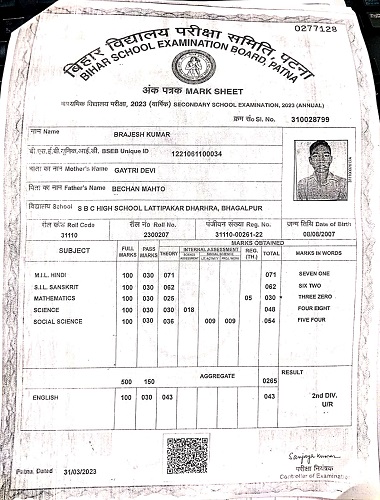 0277128
बिहार विद्यालय परीक्षा समिति, पटना
BIHAR SCHOOL EXAMINATION BOARD, PATNA
अंक पत्रक MARK SHEET
माध्यमिक विद्यालय परीक्षा, 2023 (वार्षिक) SECONDARY SCHOOL EXAMINATION, 2023 (ANNUAL)
क्रम सं० Sl. No. 310028799
नाम Name BRAJESH KUMAR
बी.एस.ई.बी. यूनिक आई.डी. BSEB Unique ID 1221061100034
माता का नाम Mother's Name GAYTRI DEVI
पिता का नाम Father's Name BECHAN MAHTO
विद्यालय School S B C HIGH SCHOOL LATTIPAKAR DHARHRA, BHAGALPUR
रौल कोड Roll Code रौल नं० Roll No. पंजीयन संख्या Reg. No. जन्म तिथि Date of Birth
31110 2300207 31110-00261-22 08/08/2007
MARKS OBTAINED
SUBJECT FULL MARKS PASS MARKS THEORY INTERNAL ASSESSMENT REG. (TH.) TOTAL MARKS IN WORDS
M.I.L. HINDI 100 030 071 071 SEVEN ONE
S.I.L. SANSKRIT 100 030 062 062 SIX TWO
MATHEMATICS 100 030 025 05 030 THREE ZERO
SCIENCE 100 030 030 018 048 FOUR EIGHT
SOCIAL SCIENCE 100 030 036 009 009 054 FIVE FOUR
AGGREGATE RESULT
500 150 0265
ENGLISH 100 030 043 043 2nd DIV.
U/R
Sanjay Kumar
परीक्षा नियंत्रक
Patna, Dated 31/03/2023 Controller of Examination